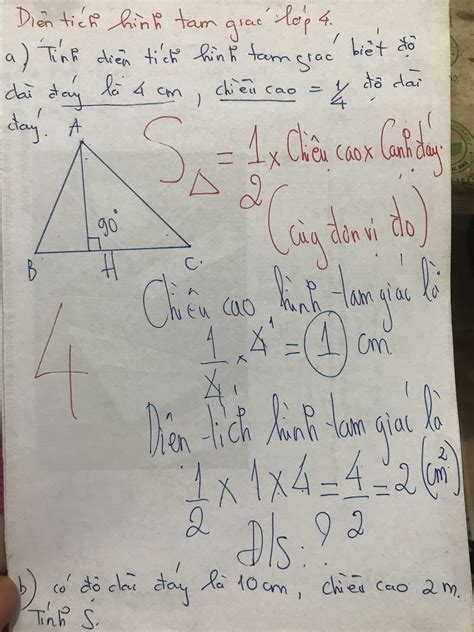 Diện tích hình tam giác lớp 4.
a) Tính diện tích hình tam giác biết độ
dài đáy là 4 cm, chiều cao = 1/4 độ dài
đáy.
A
S△ = 1/2 x Chiều cao x Cạnh đáy
(cùng đơn vị đo)
90°
B H C.
4
Chiều cao hình tam giác là
1/4 x 4 = 1 cm
Diện tích hình tam giác là
1/2 x 1 x 4 = 4/2 = 2 (cm²)
Đ/s: ?
b) có độ dài đáy là 10cm, chiều cao 2m.
Tính S.